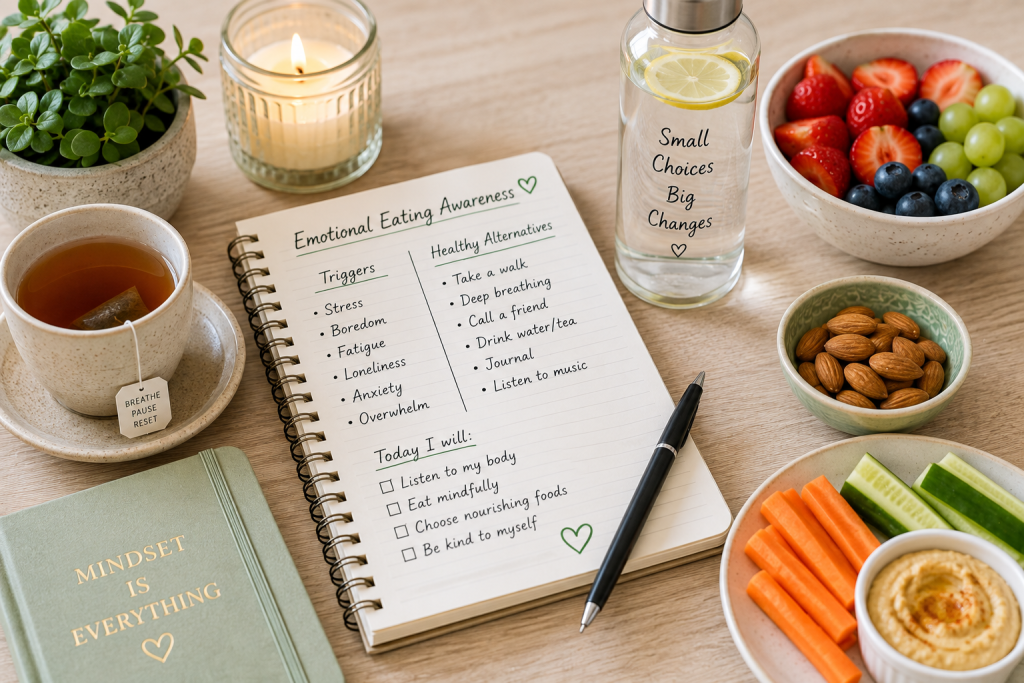 Emotional Eating Awareness
Triggers
• Stress
• Boredom
• Fatigue
• Loneliness
• Anxiety
• Overwhelm
Healthy Alternatives
• Take a walk
• Deep breathing
• Call a friend
• Drink water/tea
• Journal
• Listen to music
Today I will:
Listen to my body
Eat mindfully
Choose nourishing foods
Be kind to myself
Small
Choices
Big
Changes
BREATHE
PAUSE
RESET
MINDSET
IS
EVERYTHING